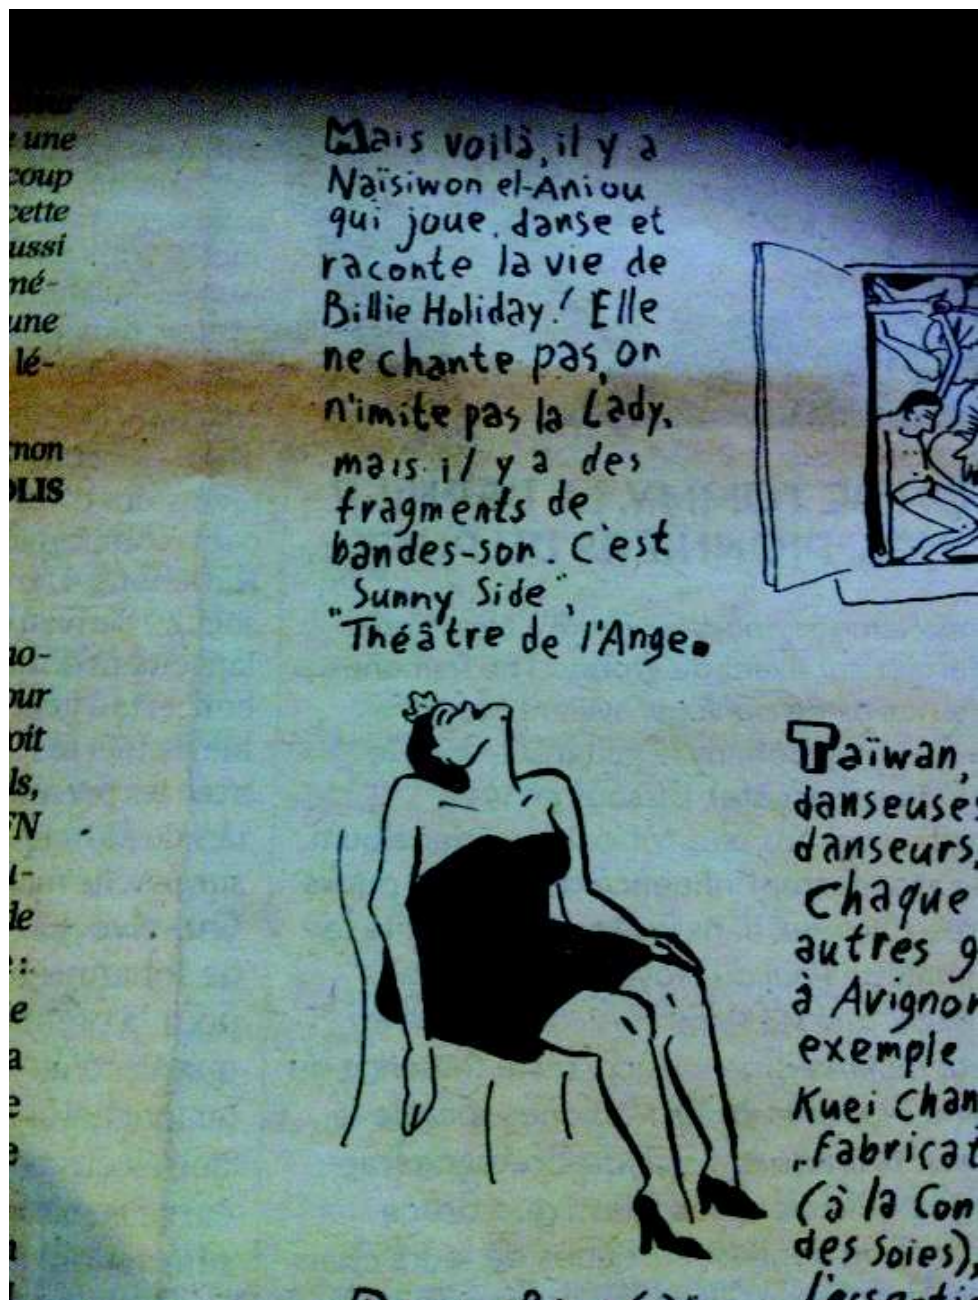 une
coup
cette
ussi
mé-
une
lé-
non
OLIS
no-
our
oit
ls,
FN
de
:
e
a
e
e
Mais voilà, il y a
Naïsiwon el-Aniou
qui joue, danse et
raconte la vie de
Billie Holiday! Elle
ne chante pas, on
n'imite pas la Lady,
mais il y a des
fragments de
bandes-son. C'est
"Sunny Side",
Théâtre de l'Ange.
Taïwan,
danseuses
danseurs,
Chaque
autres g
à Avignon
exemple
Kuei Chan
"Fabricat
(à la Con
des Soies),